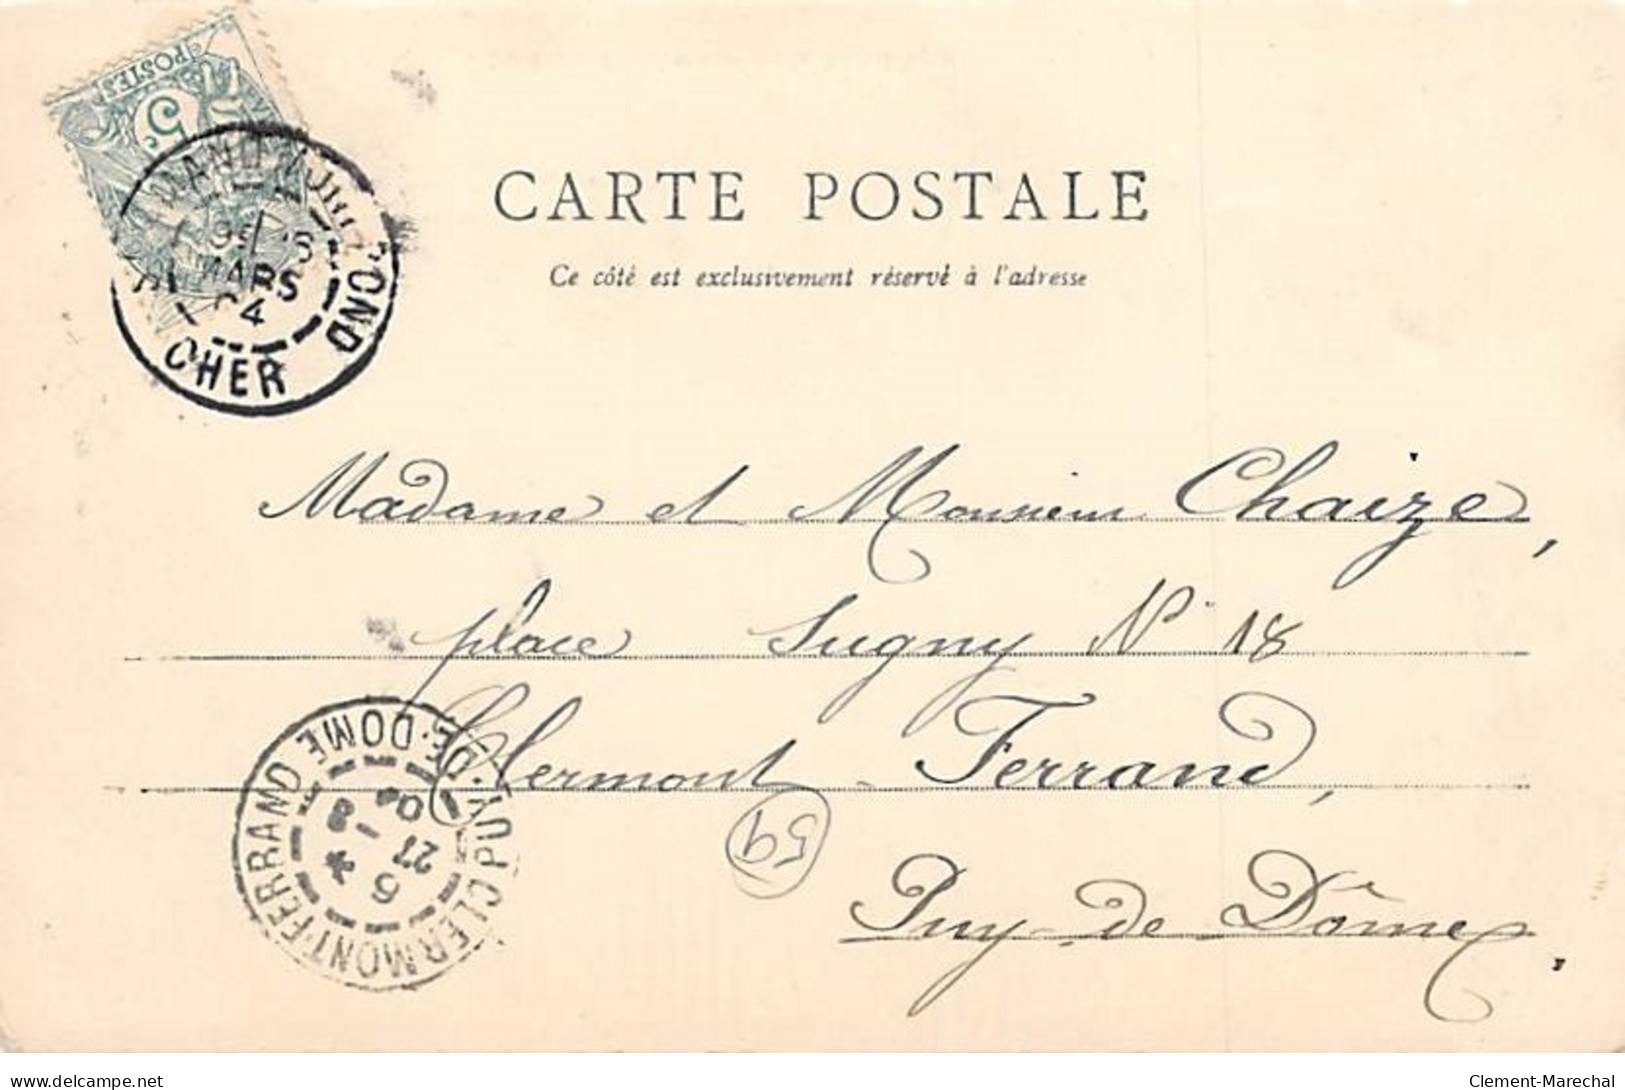 POSTES
5c
MARS
04
CHER
CARTE POSTALE
Ce côté est exclusivement réservé à l'adresse
Madame et Monsieur Chaize,
place Sugny N° 18
Clermont-Ferrand,
Puy-de Dôme
59
CLERMONT-FERRAND PUY-DE-DOME
6
27
-3
04
delcampe.net
Clement-Marechal